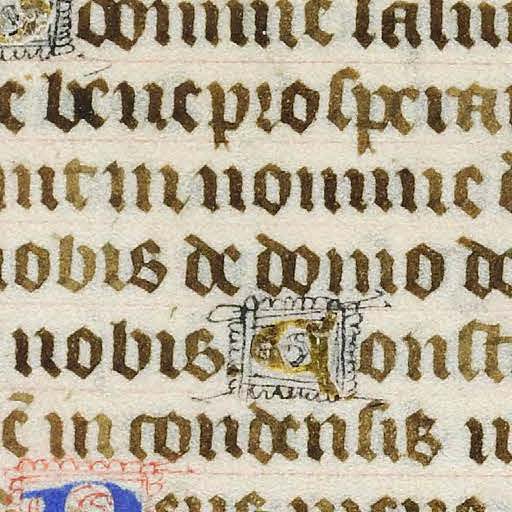 domine salu
e bene prospera
nit in nomine d
uobis de domo do
nobis Const
ē in condensis u
Deus meus